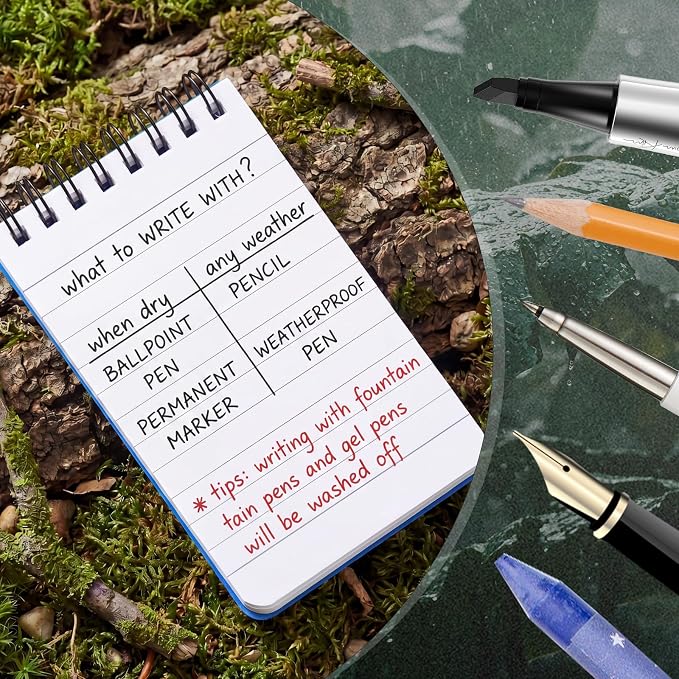 what to WRITE WITH?
when dry any weather
BALLPOINT PEN
PENCIL
PERMANENT MARKER
WEATHERPROOF PEN
* tips: writing with fountain
tain pens and gel pens
will be washed off